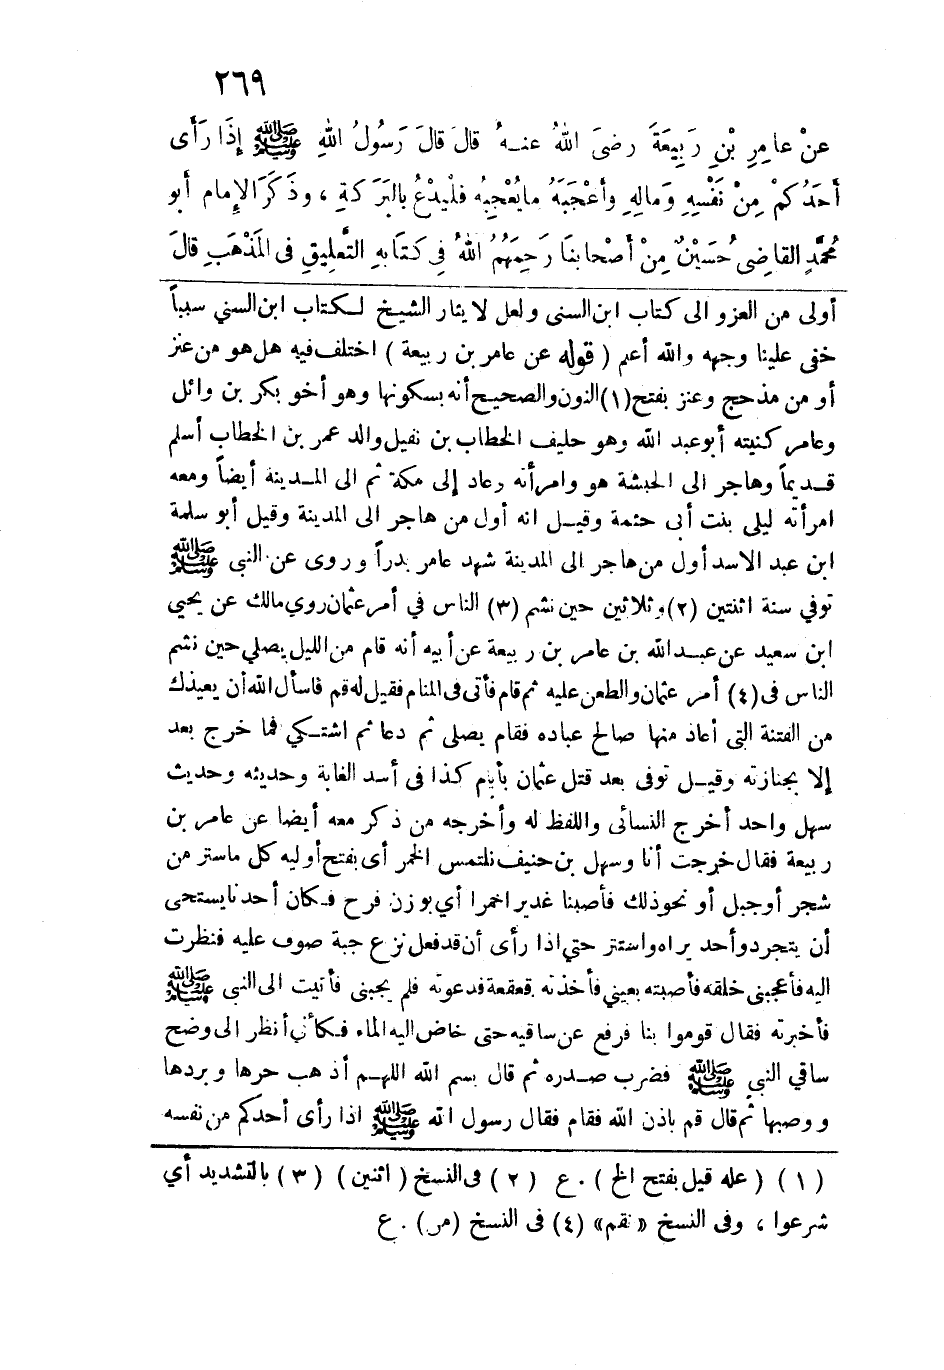 ٢٦٩
عَنْ عامِرِ بْنِ رَبِيعَةَ رضىَ اللهُ عنهُ قالَ قالَ رَسُولُ اللهِ ﷺ إِذَا رَأَى
أَحَدُكمْ مِنْ نَفْسِهِ وَمالِهِ وأَعْجَبَهُ مايُعْجِبُه فلْيَدْعُ بالبَرَكةِ ، وذَكَرَ الإِمام أبو
مُحمَّدٍ القاضِى حُسَيْنٌ مِنْ أصْحابنَا رَحِمَهُمُ اللهُ فى كتابهِ التَّعلِيقِ فى المَذْهَبِ قالَ
أولى من العزو الى كتاب ابن السنى ولعل لايثار الشيخ لكتاب ابن السني سبباً
خفى علينا وجهه والله أعلم ( قوله عن عامر بن ربيعة ) اختلف فيه هل هو من عنز
أو من مذحج وعنز بفتح (١) النون والصحيح أنه بسكونها وهو أخو بكر بن وائل
وعامر كنيته أبو عبد الله وهو حليف الخطاب بن نفيل والد عمر بن الخطاب أسلم
قديماً وهاجر الى الحبشة هو وامرأته وعاد إلى مكة ثم الى المدينة أيضاً ومعه
امرأته ليلى بنت أبى حثمة وقيل انه أول من هاجر الى المدينة وقيل أبو سلمة
ابن عبد الاسد أول من هاجر الى المدينة شهد عامر بدراً وروى عن النبى ﷺ
توفي سنة اثنتين (٢) وثلاثين حين نشم (٣) الناس في أمر عثمان روي مالك عن يحيي
ابن سعيد عن عبد الله بن عامر بن ربيعة عن أبيه أنه قام من الليل يصلي حين نشم
الناس فى (٤) أمر عثمان والطعن عليه ثم قام فأتى فى المنام فقيل له قم فاسأل الله أن يعيذك
من الفتنة التى أعاذ منها صالح عباده فقام يصلى ثم دعا ثم اشتكي فما خرج بعد
إلا بجنازته وقيل توفى بعد قتل عثمان بأيام كذا فى أسد الغابة وحديثه وحديث
سهل واحد أخرج النسائى واللفظ له وأخرجه من ذكر معه أيضا عن عامر بن
ربيعة فقال خرجت أنا وسهل بن حنيف نلتمس الخمر أى بفتح أوليه كل ماستر من
شجر أو جبل أو نحو ذلك فأصبنا غديرا خمرا أي بوزن فرح فكان أحدنا يستحى
أن يتجرد وأحد يراه واستتر حتى اذا رأى أن قد فعل نزع جبة صوف عليه فنظرت
اليه فأعجبنى خلقه فأصبته بعيني فأخذته قعقعة فدعوته فلم يجبنى فأتيت الى النبى ﷺ
فأخبرته فقال قوموا بنا فرفع عن ساقيه حتى خاض اليه الماء فكأنى أنظر الى وضح
ساقي النبي ﷺ فضرب صدره ثم قال بسم الله اللهم أذهب حرها وبردها
ووصبها ثم قال قم باذن الله فقام فقال رسول الله ﷺ اذا رأى أحدكم من نفسه
(١) ( عله قيل بفتح الخ ) . ع (٢) فى النسخ ( اثنين ) (٣) بالتشديد أي
شرعوا ، وفى النسخ « نقم» (٤) فى النسخ (من) . ع